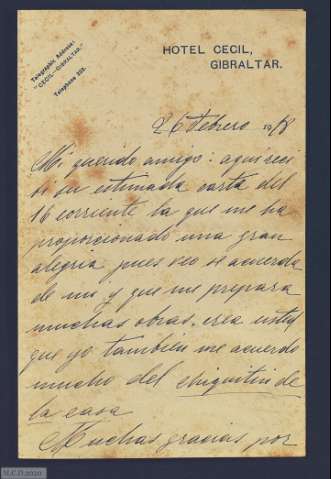 Telegraphic Address:
"CECIL-GIBRALTAR."
Telephone 223.
HOTEL CECIL,
GIBRALTAR.
26 Febrero 1918
Mi querido amigo: aquí reci
bí su estimada carta del
16 corriente la que me ha
proporcionado una gran
alegria pues veo se acuerda
de mi y que me prepara
muchas obras, crea usted
que yo también me acuerdo
mucho del chiquitin de
la casa
Muchas gracias por